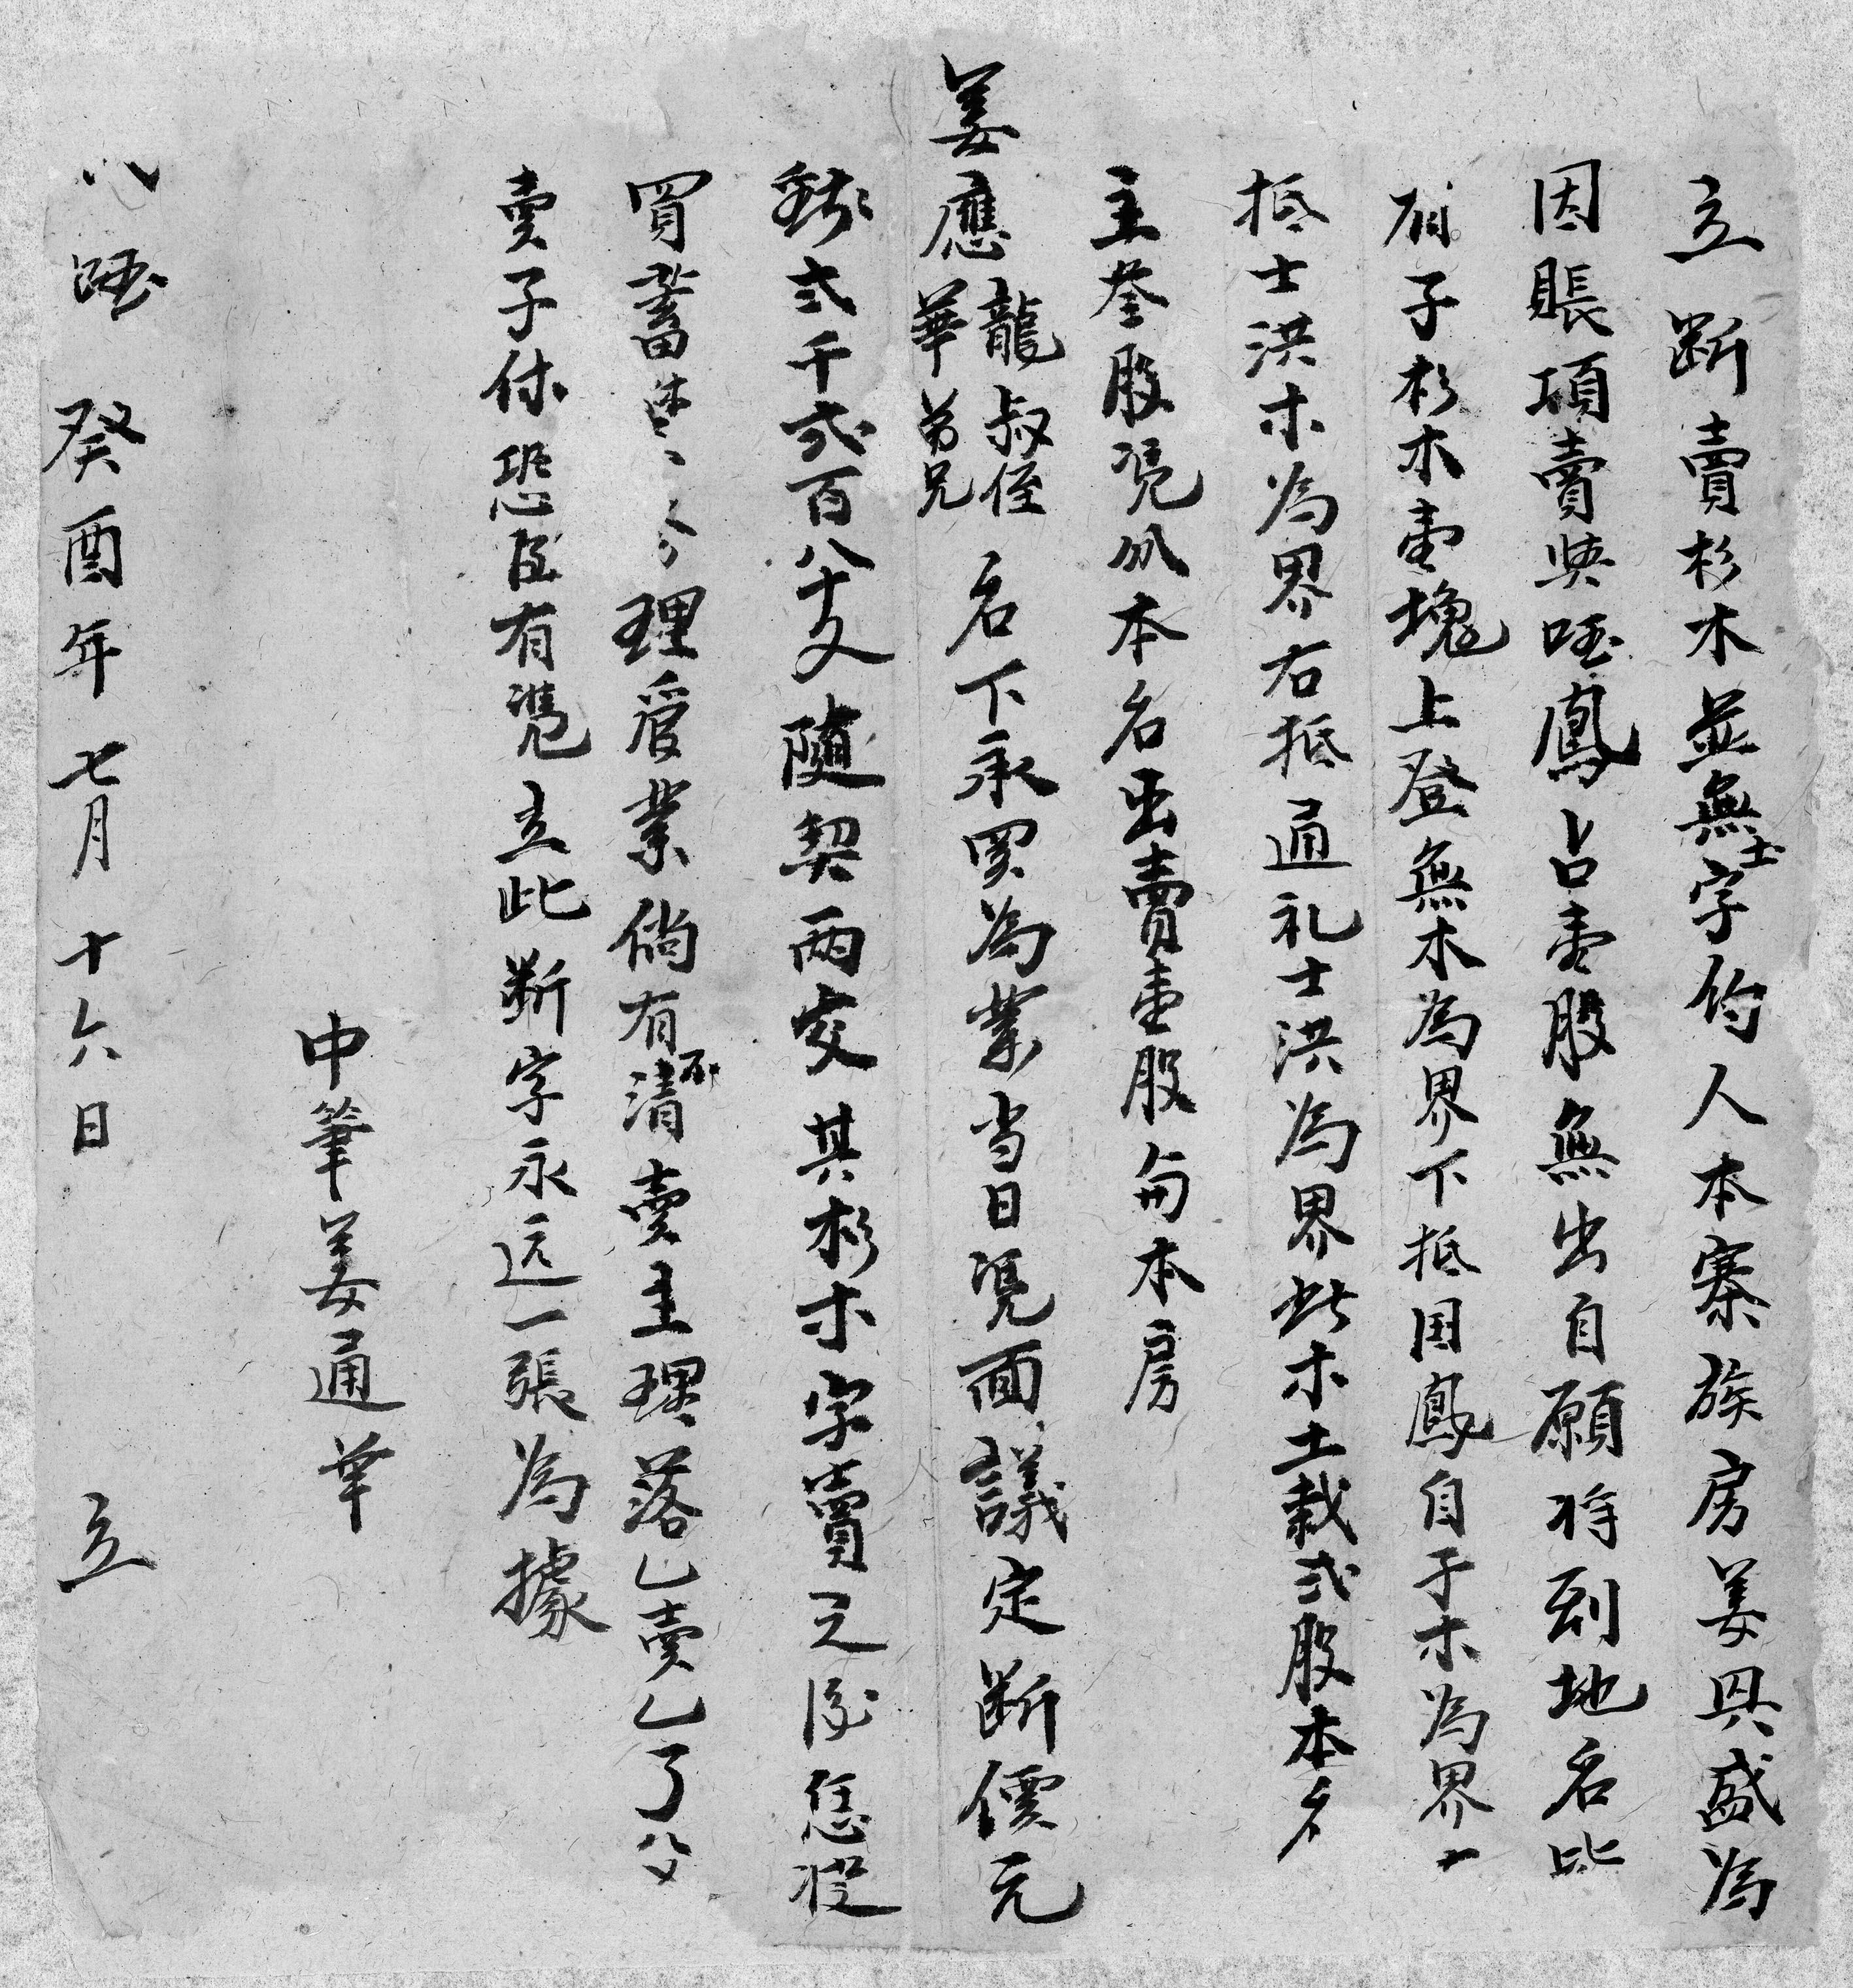 立断賣杉木並無土字约人本寨族房姜興盛為
因賬項賣與咥鳳占壹股無出自願将到地名岇
有子杉木壹塊上登無木為界下抵困鳳自于木為界
抵士洪木為界右抵通礼士洪為界此木土栽弍股本
主叁股凴从本名出賣壹股與本房
姜應龍叔侄
華弟兄
名下承買為業当日凴面議定断價元
錢弍千弍百八十文隨契兩交其杉木字賣之後恁從
買蓄禁理管業倘有不清賣主理落乚賣乚了父
賣子休恐後有凴立此断字永远一張為據
中筆姜通華
八咥癸酉年七月十六日立